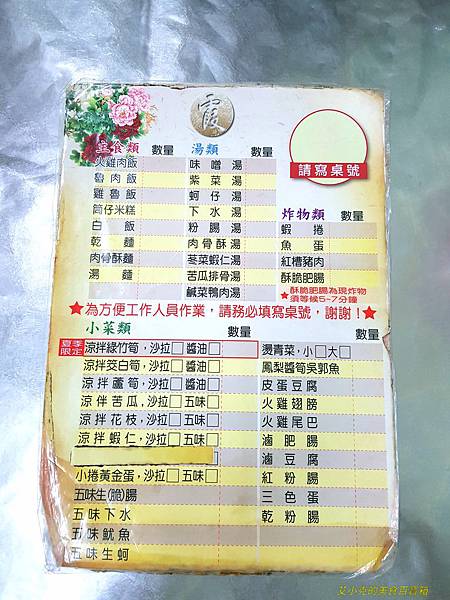 霞
請寫桌號
主食類 數量
火雞肉飯
魯肉飯
雞魯飯
筒仔米糕
白飯
乾麵
肉骨酥麵
湯麵
湯類 數量
味噌湯
紫菜湯
蚵仔湯
下水湯
粉腸湯
肉骨酥湯
菶菜蝦仁湯
苦瓜排骨湯
鹹菜鴨肉湯
炸物類 數量
蝦捲
魚蛋
紅槽豬肉
酥脆肥腸
★酥脆肥腸為現炸物
須等候5~7分鐘
★為方便工作人員作業，請務必填寫桌號，謝謝！★
小菜類 數量
夏季限定 涼拌綠竹筍，沙拉□ 醬油□
涼拌茭白筍，沙拉□ 醬油□
涼拌蘆筍，沙拉□ 醬油□
涼伴苦瓜，沙拉□ 五味□
涼拌花枝，沙拉□ 五味□
涼拌蝦仁，沙拉□ 五味□
小捲黃金蛋，沙拉□ 五味□
五味生(脆)腸
五味下水
五味魷魚
五味生蚵
數量
燙青菜，小□大□
鳳梨醬筍吳郭魚
皮蛋豆腐
火雞翅膀
火雞尾巴
滷肥腸
滷豆腐
紅粉腸
三色蛋
乾粉腸
艾小克的美食百寶箱